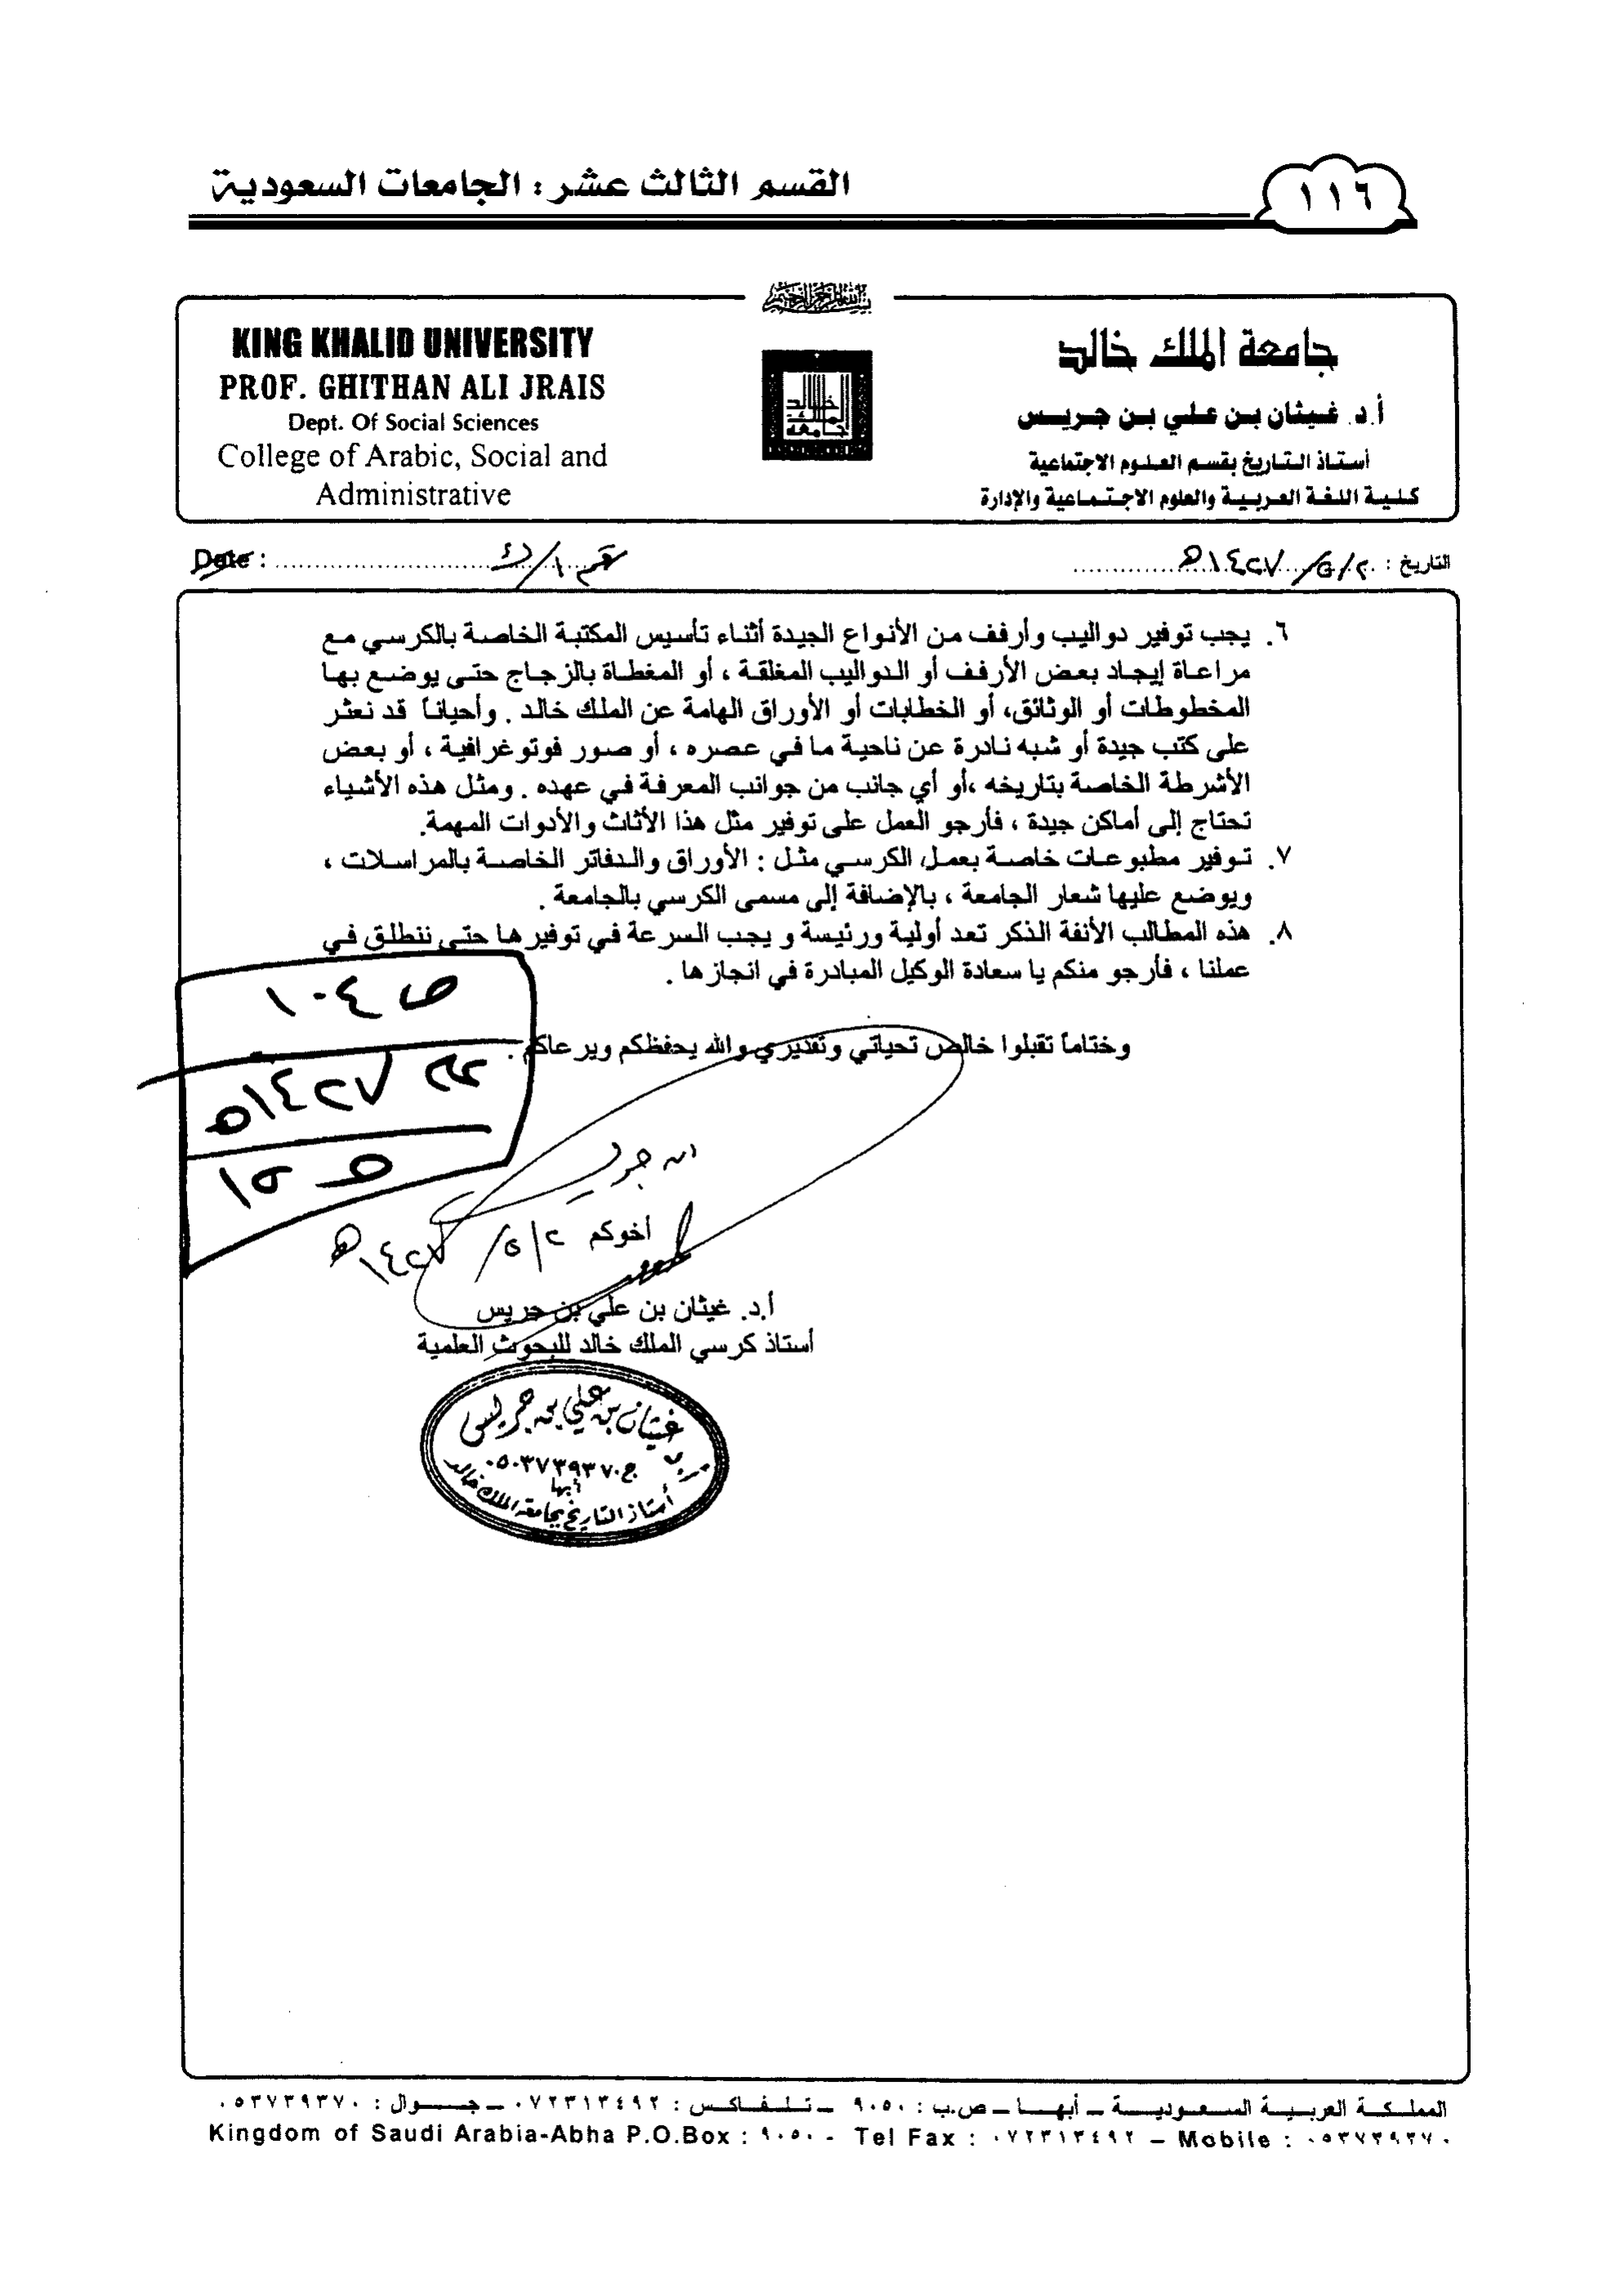 القسم الثالث عشر : الجامعات السعودية
١١٦
بسم الله الرحمن الرحيم
جامعة الملك خالد
أ.د. غيثان بن علي بن جريس
أستاذ التاريخ بقسم العلوم الاجتماعية
كلية اللغة العربية والعلوم الاجتماعية والإدارة
جامعة الملك خالد
KING KHALID UNIVERSITY
PROF. GHITHAN ALI JRAIS
Dept. Of Social Sciences
College of Arabic, Social and
Administrative
التاريخ : ٢/٥/١٤٢٧هـ
Date :
٦. يجب توفير دواليب وأرفف من الأنواع الجيدة أثناء تأسيس المكتبة الخاصة بالكرسي مع
مراعاة إيجاد بعض الأرفف أو الدواليب المغلقة ، أو المغطاة بالزجاج حتى يوضع بها
المخطوطات أو الوثائق، أو الخطابات أو الأوراق الهامة عن الملك خالد . وأحياناً قد نعثر
على كتب جيدة أو شبه نادرة عن ناحية ما في عصره ، أو صور فوتوغرافية ، أو بعض
الأشرطة الخاصة بتاريخه ،أو أي جانب من جوانب المعرفة في عهده . ومثل هذه الأشياء
تحتاج إلى أماكن جيدة ، فأرجو العمل على توفير مثل هذا الأثاث والأدوات المهمة.
٧. توفير مطبوعات خاصة بعمل الكرسي مثل : الأوراق والدفاتر الخاصة بالمراسلات ،
ويوضع عليها شعار الجامعة ، بالإضافة إلى مسمى الكرسي بالجامعة .
٨. هذه المطالب الأنفة الذكر تعد أولية ورئيسة و يجب السرعة في توفيرها حتى ننطلق في
عملنا ، فأرجو منكم يا سعادة الوكيل المبادرة في انجازها .
ص ١٠٤
١٤٢٧هـ
ص ١٥
وختاماً تقبلوا خالص تحياتي وتقديري والله يحفظكم ويرعاكم .
ابن جريس
أخوكم
٢/٥/١٤٢٧هـ
أ.د. غيثان بن علي بن جريس
أستاذ كرسي الملك خالد للبحوث العلمية
غيثان بن علي بن جريس
ج.٠٥٠٣٧٣٩٣٧
أبها
أستاذ التاريخ بجامعة الملك خالد
المملكة العربية السعودية – أبها – ص.ب : ٩٠٥٠ – تلفاكس : ٠٧٢٣١٣٤٩٢ – جوال : ٠٥٣٧٣٩٣٧٠
Kingdom of Saudi Arabia-Abha P.O.Box : ٩٠٥٠ - Tel Fax : ٠٧٢٣١٣٤٩٢ – Mobile : ٠٥٣٧٣٩٣٧٠